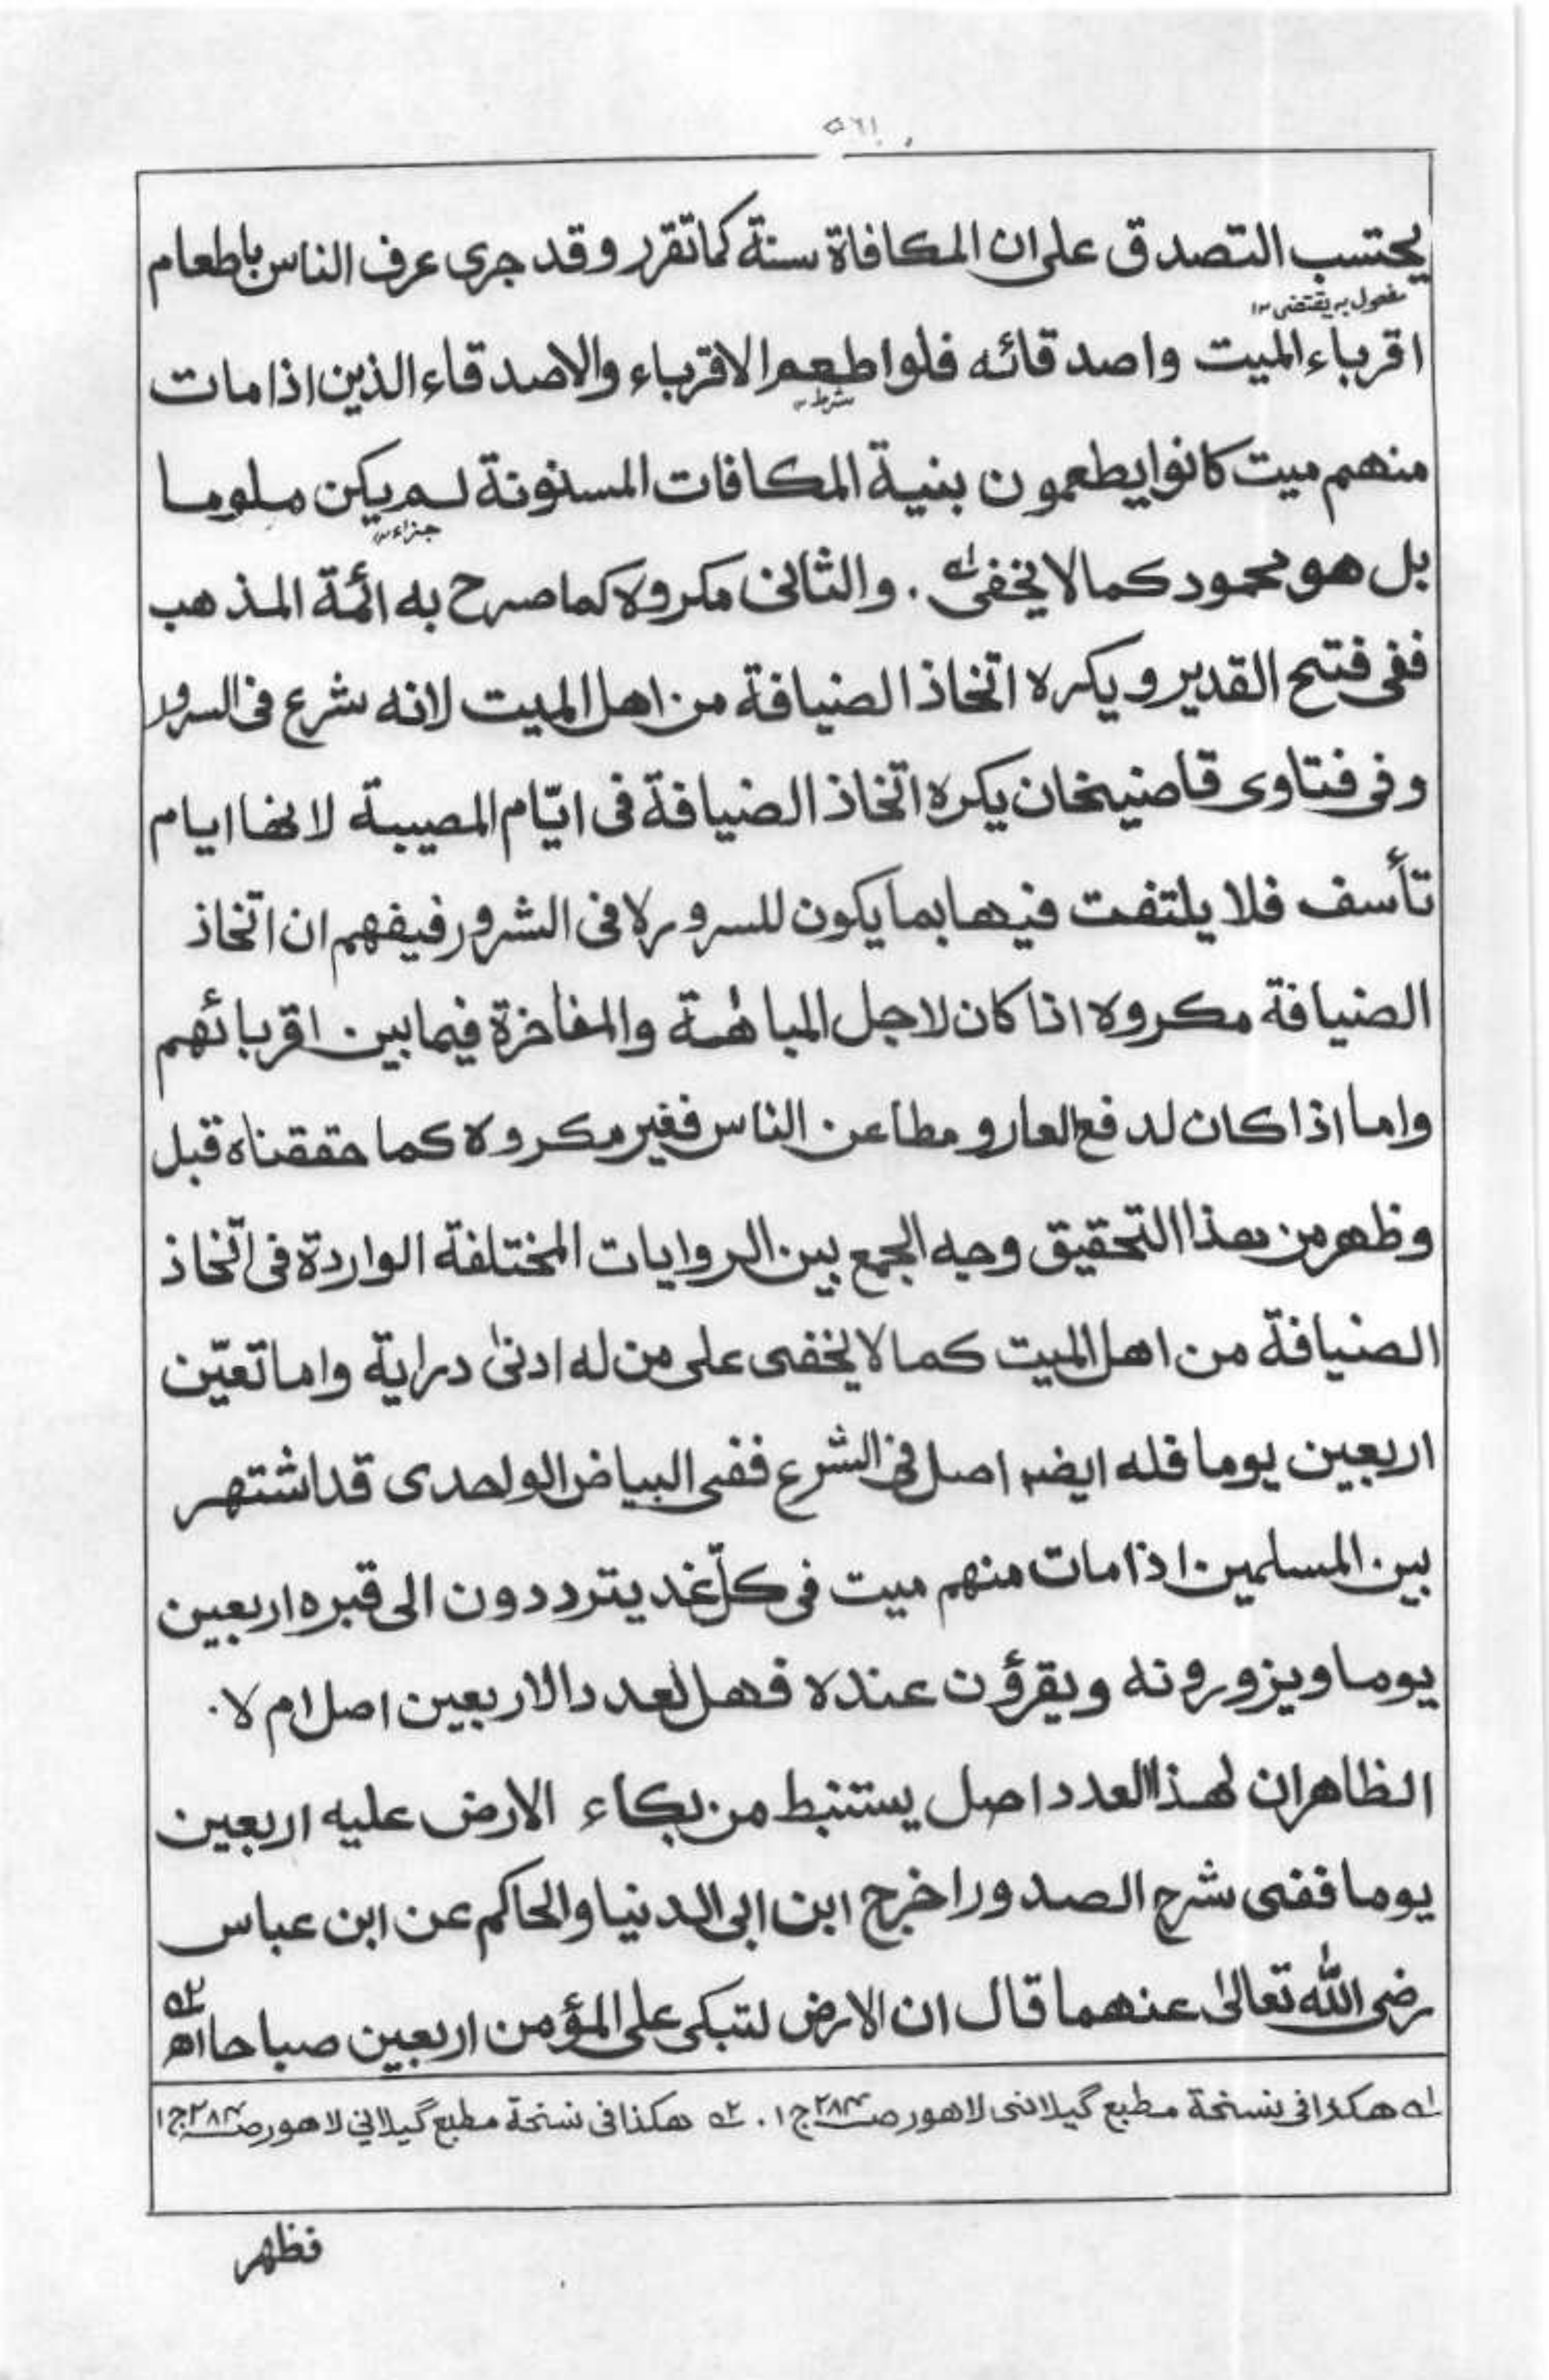 ٥٦١
يحتسب التصدق على ان المكافاة سنة كما تقرر وقد جرى عرف الناس باطعام
مفعول به يقتضى ١٢
اقرباء الميت واصدقائه فلو اطعم الاقرباء والاصدقاء الذين اذا مات
شرط ١٢
منهم ميت كانوا يطعمون بنية المكافات المسنونة لم يكن ملوما
جزاء ١٢
بل هو محمود كما لا يخفى لـه . والثانى مكروه كما صرح به ائمة المذهب
ففى فتح القدير ويكره اتخاذ الضيافة من اهل الميت لانه شرع فى السرور
وفى فتاوى قاضيخان يكره اتخاذ الضيافة فى ايّام المصيبة لانها ايام
تأسف فلا يلتفت فيها بما يكون للسرور لا فى الشرور فيفهم ان اتخاذ
الضيافة مكروه اذا كان لاجل المباهٰة والمفاخرة فيما بين اقربائهم
واما اذا كان لدفع العار و مطاعن الناس فغير مكروه كما حققناه قبل
وظهر من هذا التحقيق وجه الجمع بين الروايات المختلفة الواردة فى اتّخاذ
الضيافة من اهل الميت كما لا يخفى على من له ادنىٰ دراية واما تعيّن
اربعين يوما فله ايضا اصل فى الشرع ففى البياض الواحدى قد اشتهر
بين المسلمين اذا مات منهم ميت فى كلّ غد يترددون الى قبره اربعين
يوما ويزورونه ويقرؤن عنده فهل لعدد الاربعين اصل ام لا .
الظاهر ان لهذا العدد اصل يستنبط من بكاء الارض عليه اربعين
يوما ففى شرح الصدور اخرج ابن ابى الدنيا والحاكم عن ابن عباس
رضى اللّٰه تعالىٰ عنهما قال ان الارض لتبكى على المؤمن اربعين صباحا اھ ٢ـه
١ـه هكذا فى نسخة مطبع گيلانى لاهور صـ٢٨٣ ج ١ . ٢ـه هكذا فى نسخة مطبع گيلانى لاهور صـ٢٨٣ ج ١
فظهر